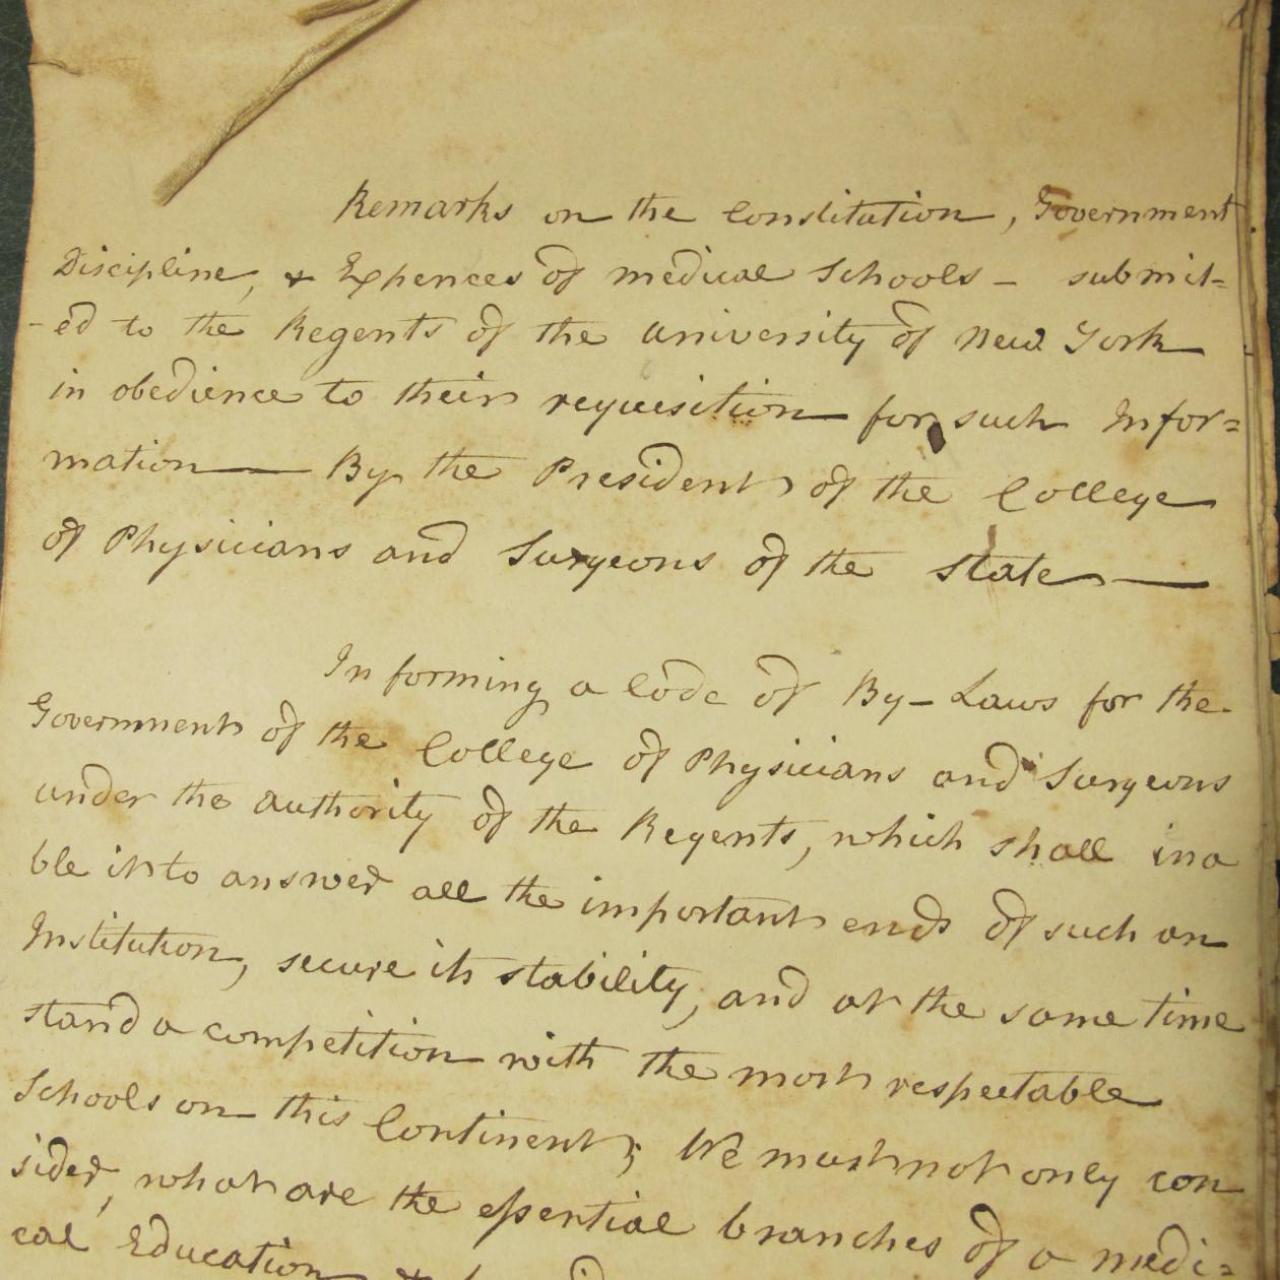 Remarks on the Constitution, Government
Discipline, & Expences of medical Schools – submit=
-ed to the Regents of the University of New York
in obedience to their requisition for such Infor=
mation — By the President of the College
of Physicians and Surgeons of the State —
In forming a Code of By-Laws for the
Government of the College of Physicians and Surgeons
under the authority of the Regents, which shall ina
ble it to answer all the important ends of such an
Institution, secure its stability, and at the same time
stand a competition with the most respectable
Schools on this Continent; We must not only con
sider, what are the essential branches of a medi=
cal Education &